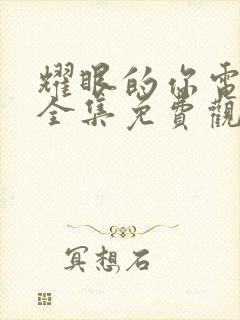 耀眼的你電
全集免費觀
冥想石